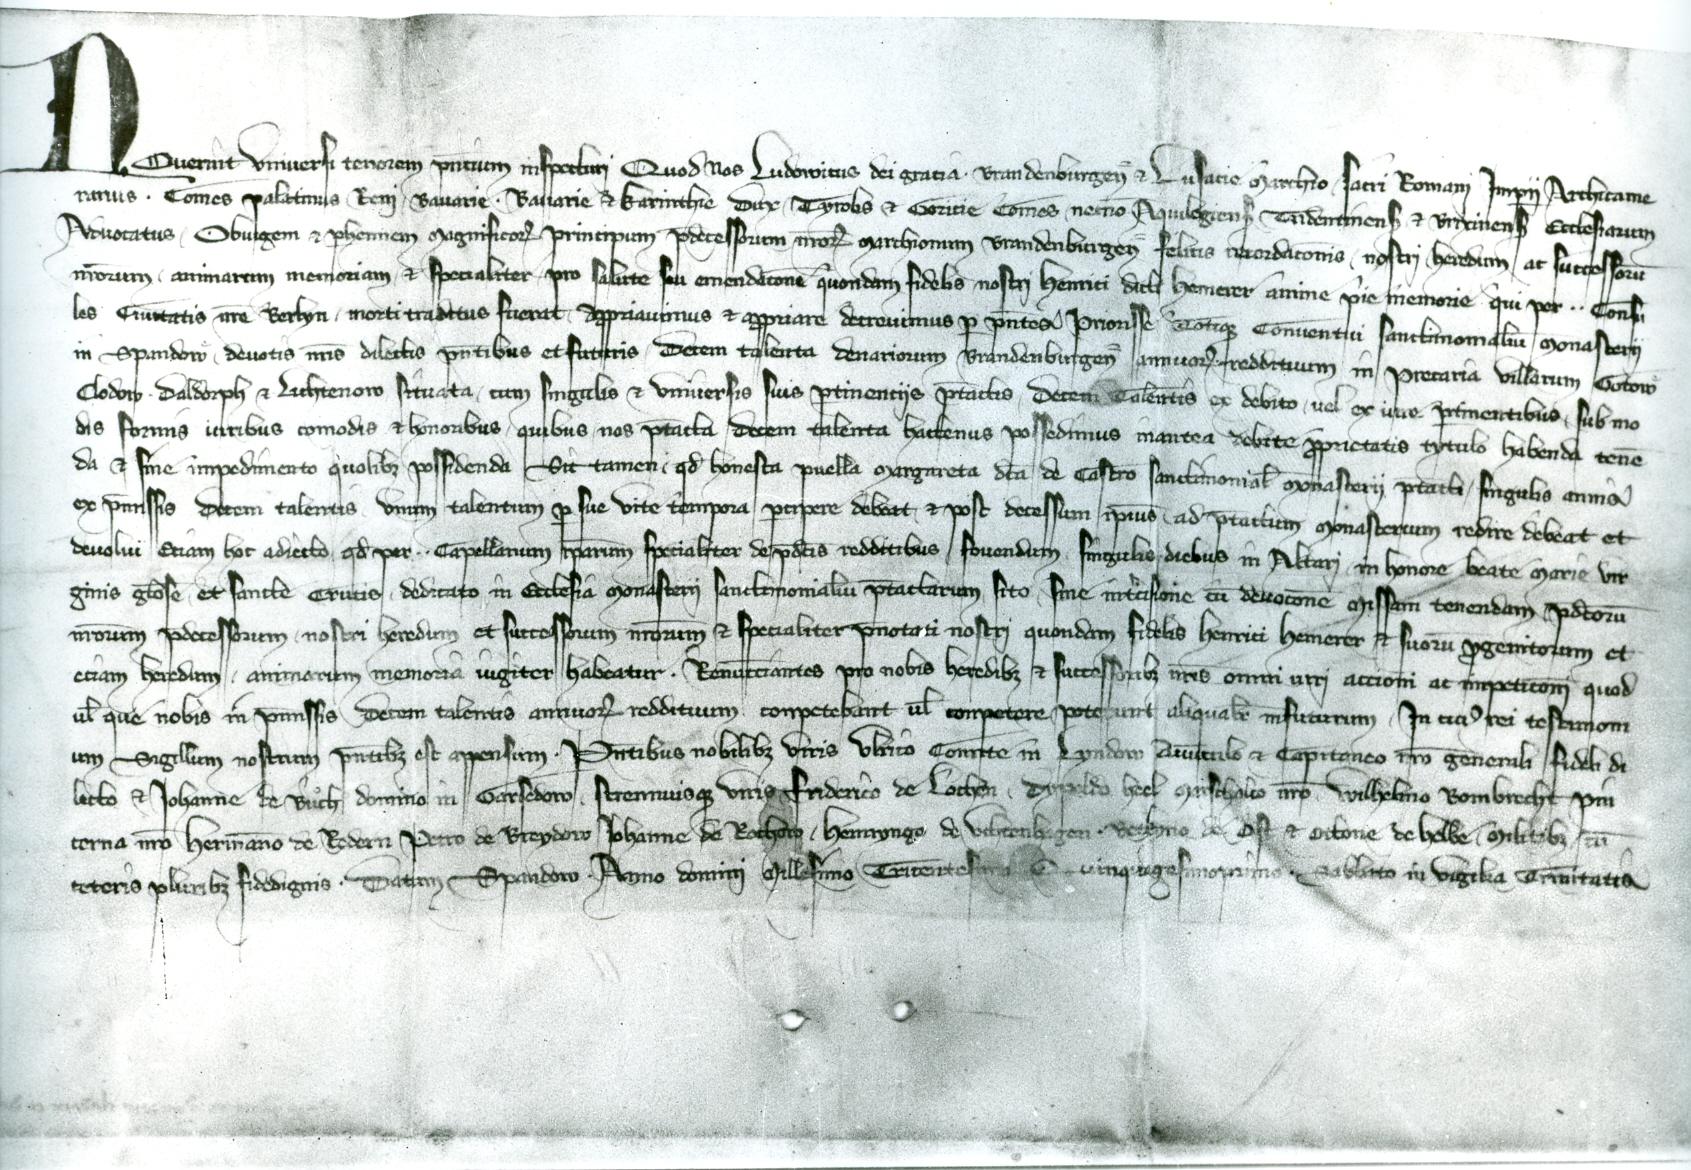 Noverint vniversi tenorem pn̄tium inspecturi Quod Nos Ludowicus dei gratia Brandenburgen̄ & Lusacie Marchio sacri Romani Imperij Archicame
rarius Comes palatinus Reni Bavarie Bavarie & Karinthie Dux Tyrolis & Goricie Comes necnō Aquilegiens̄ Tridentinens̄ & Brixinens̄ Ecclesiarum
Advocatus Ob iugem & phennem magnificoꝝ principum p̄decessorum nr̄oꝝ Marchionum Brandenburgen̄ felicis recordacōnis nostri heredum ac successorū
nr̄orum animarum memoriam & specialiter pro salute seu emendacōne quondam fidelis nostri Henrici dicti Hemerer anime pie memorie qui per Consu
les Civitatis nr̄e Berlyn morti traditus fuerat appriavimus & appriare decrevimus p pn̄tes Priorisse Totiqꝫ Conventui sanctimonialiū Monasterij
in Spandow devotis nr̄is dilectis pn̄tibus et futuris Decem talenta denariorum Brandenburgen̄ annuoꝝ reddituum in Precaria villarum Gotow
Clodow Daldorph & Lichtenow situata cum singulis & vniversis suis ptinencijs p̄tactis Decem Talentis ex debito vel ex iure ptinentibus sub mo
dis formis iuribus comodis & honoribus quibus nos p̄tacta Decem talenta hactenus possedimus inantea debite proprietatis tytulo habenda tenē
da & sine impedimento quolibꝫ possidenda Sic tamen qd̄ honesta puella Margareta dc̄a de Castro sanctimonial̄ Monasterij p̄tacti singulis annis
ex pm̄issis Decem talentis vnum talentum p sue vite tempora pcipere debeat & post decessum ipius ad p̄tactum Monasterium redire debeat et
devolui Eciam hoc adiecto qd̄ per Capellanum ipārum specialiter de p̄dc̄is redditibus fovendum singulis diebus in Altari in honore beate Marie vir
ginis gl̄ose et sancte Crucis dedicato in Ecclesia Monasterij sanctimonialiū p̄tactarum sito sine int̄cisione cū devocōne Missam tenendam p̄dc̄orū
nr̄orum p̄decessorum nostri heredum et successorum nr̄orum & specialiter p̄notati nostri quondam fidelis Henrici Hemerer & suorū pgenitorum et
eciam heredum animarum memoria iugiter habeatur Renuncciantes pro nobis heredibꝫ & successoribꝫ nr̄is omni iuri accioni ac impeticōni quod
ul̄ que nobis in pm̄issis Decem talentis annuoꝝ reddituum conpetebant ul̄ conpetere poterunt aliqualit̄ infuturum In cui9 rei testimoni
um Sigillum nostrum pn̄tibꝫ est apensum Pn̄tibus nobilibꝫ viris Vlrico Comite in Lyndow Avunculo & Capitaneo nr̄o generali fideli di
lecto & Johanne de Buch domino in Garsedow strennuisqꝫ viris Friderico de Lochen Dypoldo heel Marschalco nr̄o Wilhelmo Bombrecht pin
cerna nr̄o Hermanno de Redern Petro de Breydow Johanne de Rochow Hennyngo de Vchtenhagen de Ost & Ottone de helbe Militibꝫ cū
ceteris pluribꝫ fidedignis Datum Spandow Anno domini Millesimo Tricentesimo Quinquagesimoprimo Sabbato in vigilia Trinitatis